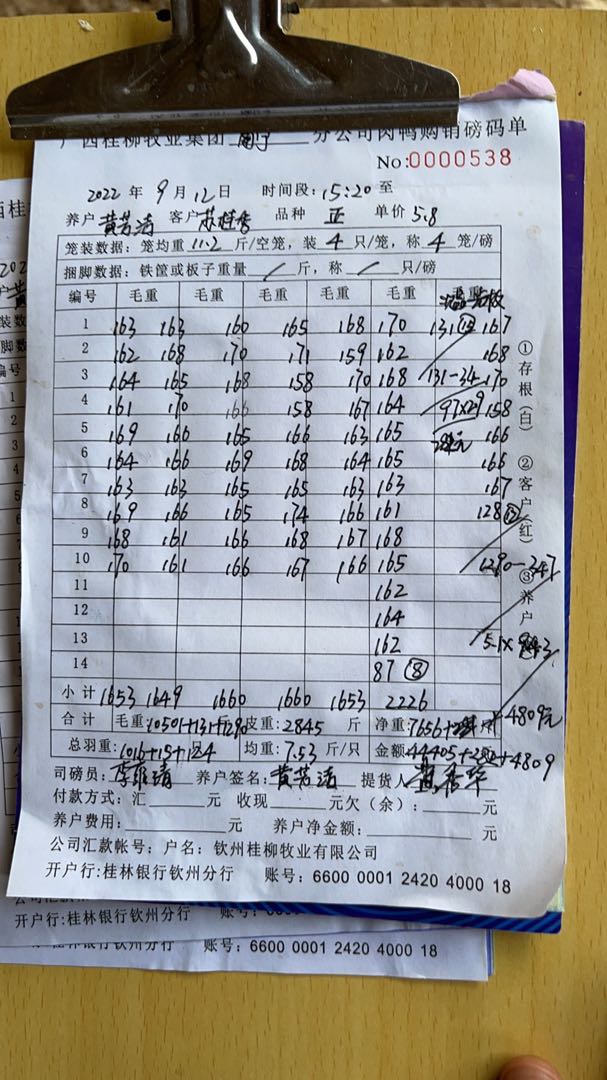 广西桂柳牧业集团 分公司肉鸭购销磅码单
No:0000538
2022 年 9 月 12 日 时间段: 15:20 至
养户 黄芳洁 客户 苏桂秀 品种 正 单价 5.8
笼装数据: 笼均重 11.2 斤/空笼, 装 4 只/笼, 称 4 笼/磅
捆脚数据: 铁筐或板子重量 / 斤, 称 / 只/磅
编号 毛重 毛重 毛重 毛重 毛重 毛重
1 163 163 160 165 168 170 131 167
2 162 168 170 171 159 162 168
3 164 165 168 158 170 168 131-34 170
4 161 170 166 158 167 164 97×2.9 158
5 169 166 165 166 163 165 166
6 164 166 169 168 164 165 166
7 163 163 165 165 163 163 167
8 169 166 165 174 166 161 128
9 168 161 166 168 167 168
10 170 161 166 167 166 165 1290-347
11 162
12 164
13 162 5.1×943
14 87 ⑧
小计 1653 1649 1660 1660 1653 2226
合计 毛重: 10501+131+1290 皮重: 2845 斤 净重: 7656+ 4809元
总羽重: 1016+15+124 均重: 7.53 斤/只 金额: 44405+282+4809
司磅员: 养户签名: 黄芳洁 提货人
付款方式: 汇 元 收现 元欠(余): 元
养户费用: 元 养户净金额: 元
公司汇款帐号; 户名: 钦州桂柳牧业有限公司
开户行:桂林银行钦州分行 账号: 6600 0001 2420 4000 18
①存根(白) ②客户(红) ③养户
开户行:桂林银行钦州分行
账号: 6600 0001 2420 4000 18